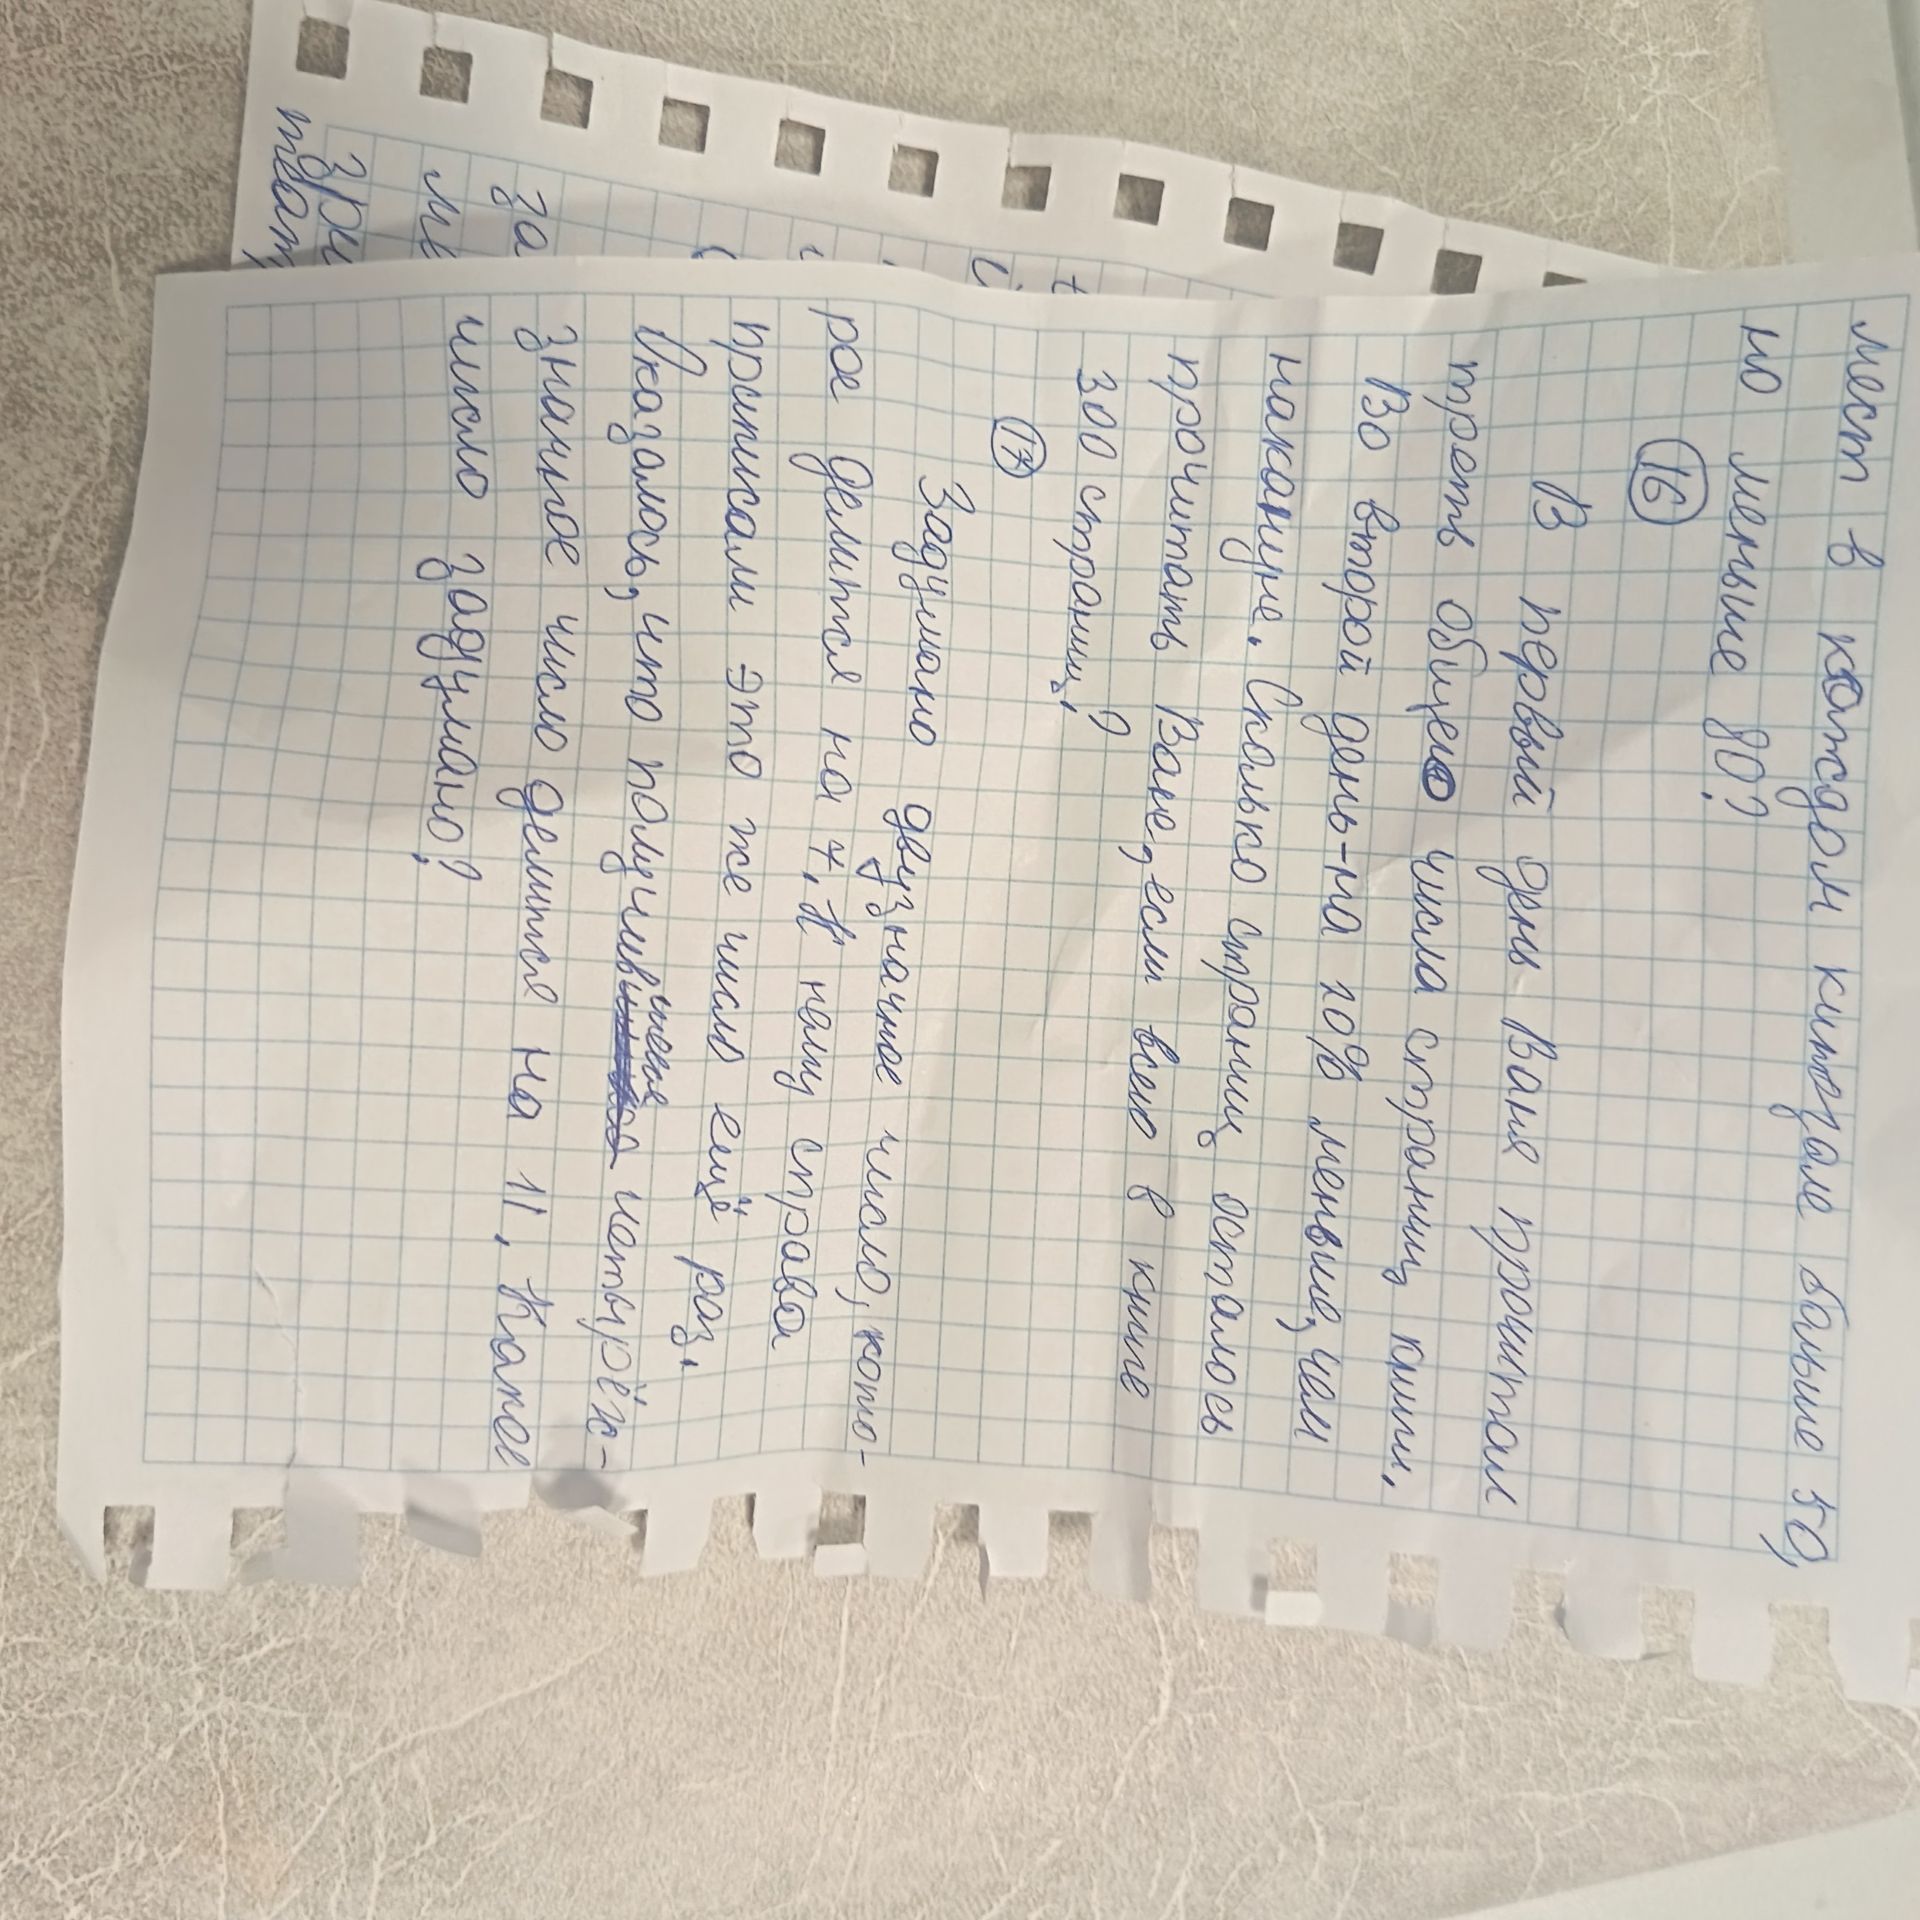 мест в каждом кинозале больше 50,
но меньше 80?
16
В первый день Ваня прочитал
треть общего числа страниц книги.
Во второй день-на 10% меньше, чем
накануне. Сколько страниц осталось
прочитать Ване, если всего в книге
300 страниц?
17
Задумано двузначное число, кото-
рое делится на 7. К нему справа
приписали это же число ещё раз.
Оказалось, что получившееся четырёх-
значное число делится на 11. Какое
число задумано?
теат
зри
ме
за